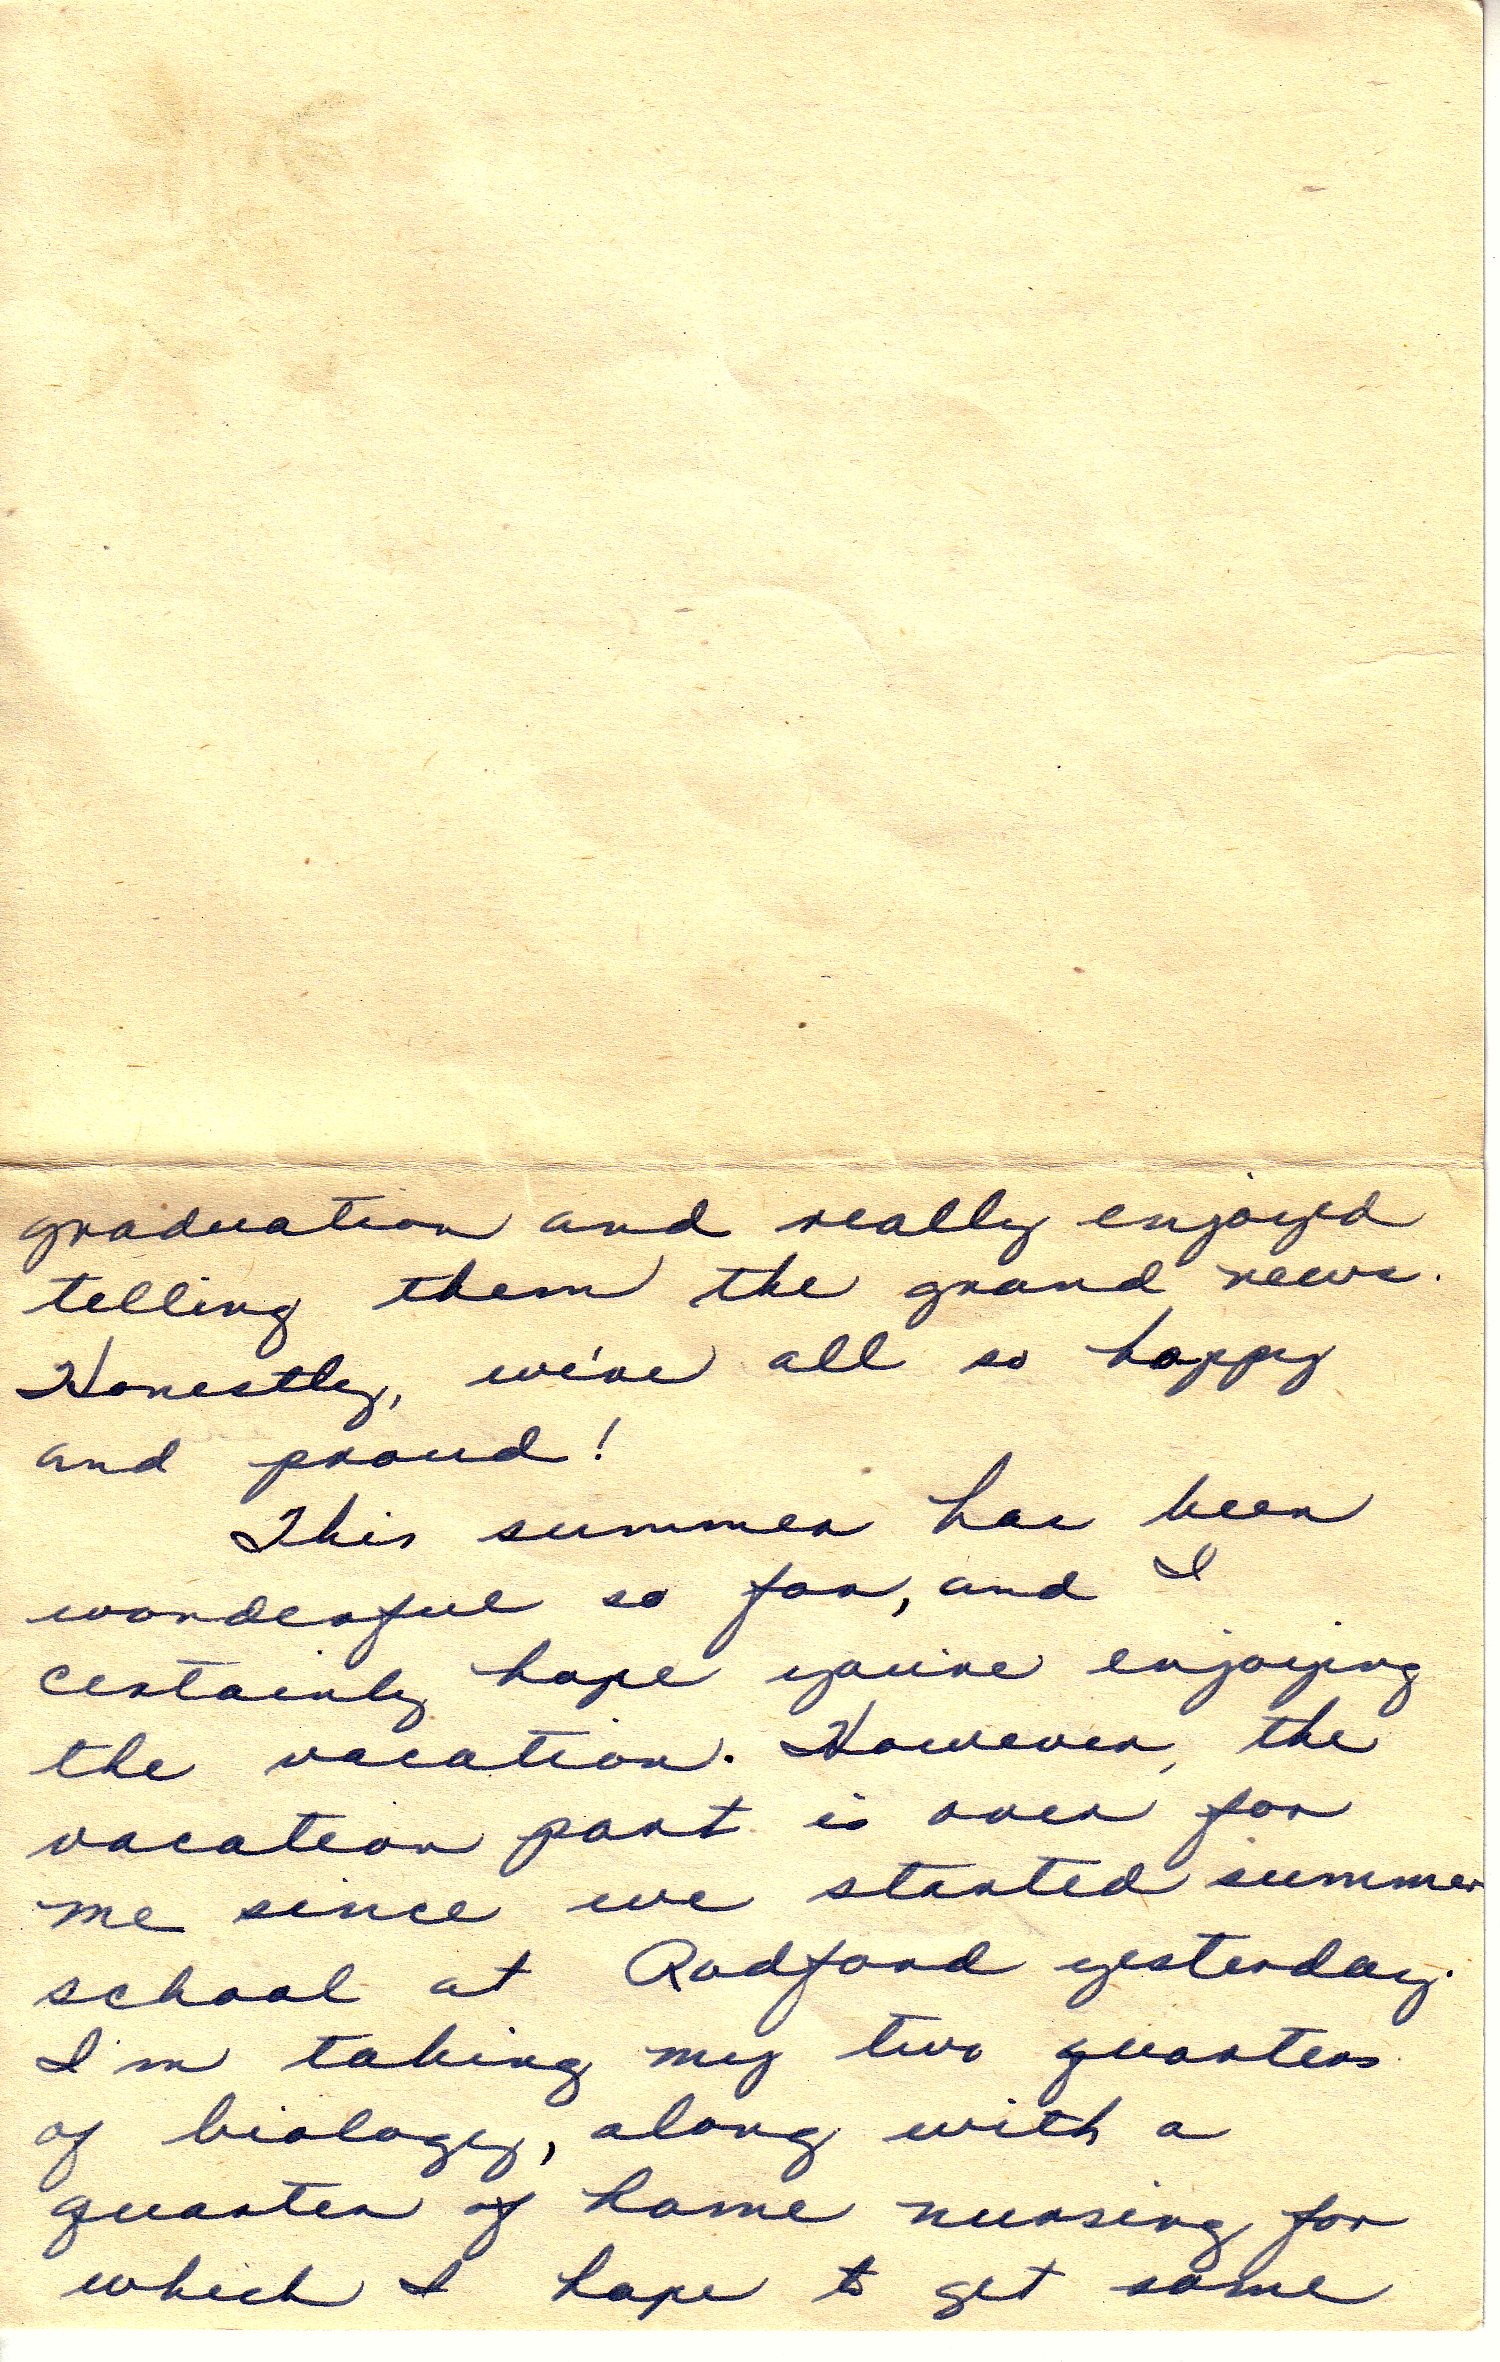 graduation and really enjoyed
telling them the grand news.
Honestly, we're all so happy
and proud!
This summer has been
wonderful so far, and I
certainly hope you're enjoying
the vacation. However, the
vacation part is over for
me since we started summer
school at Radford yesterday.
I'm taking my two quarters
of biology, along with a
quarter of home nursing for
which I hope to get some